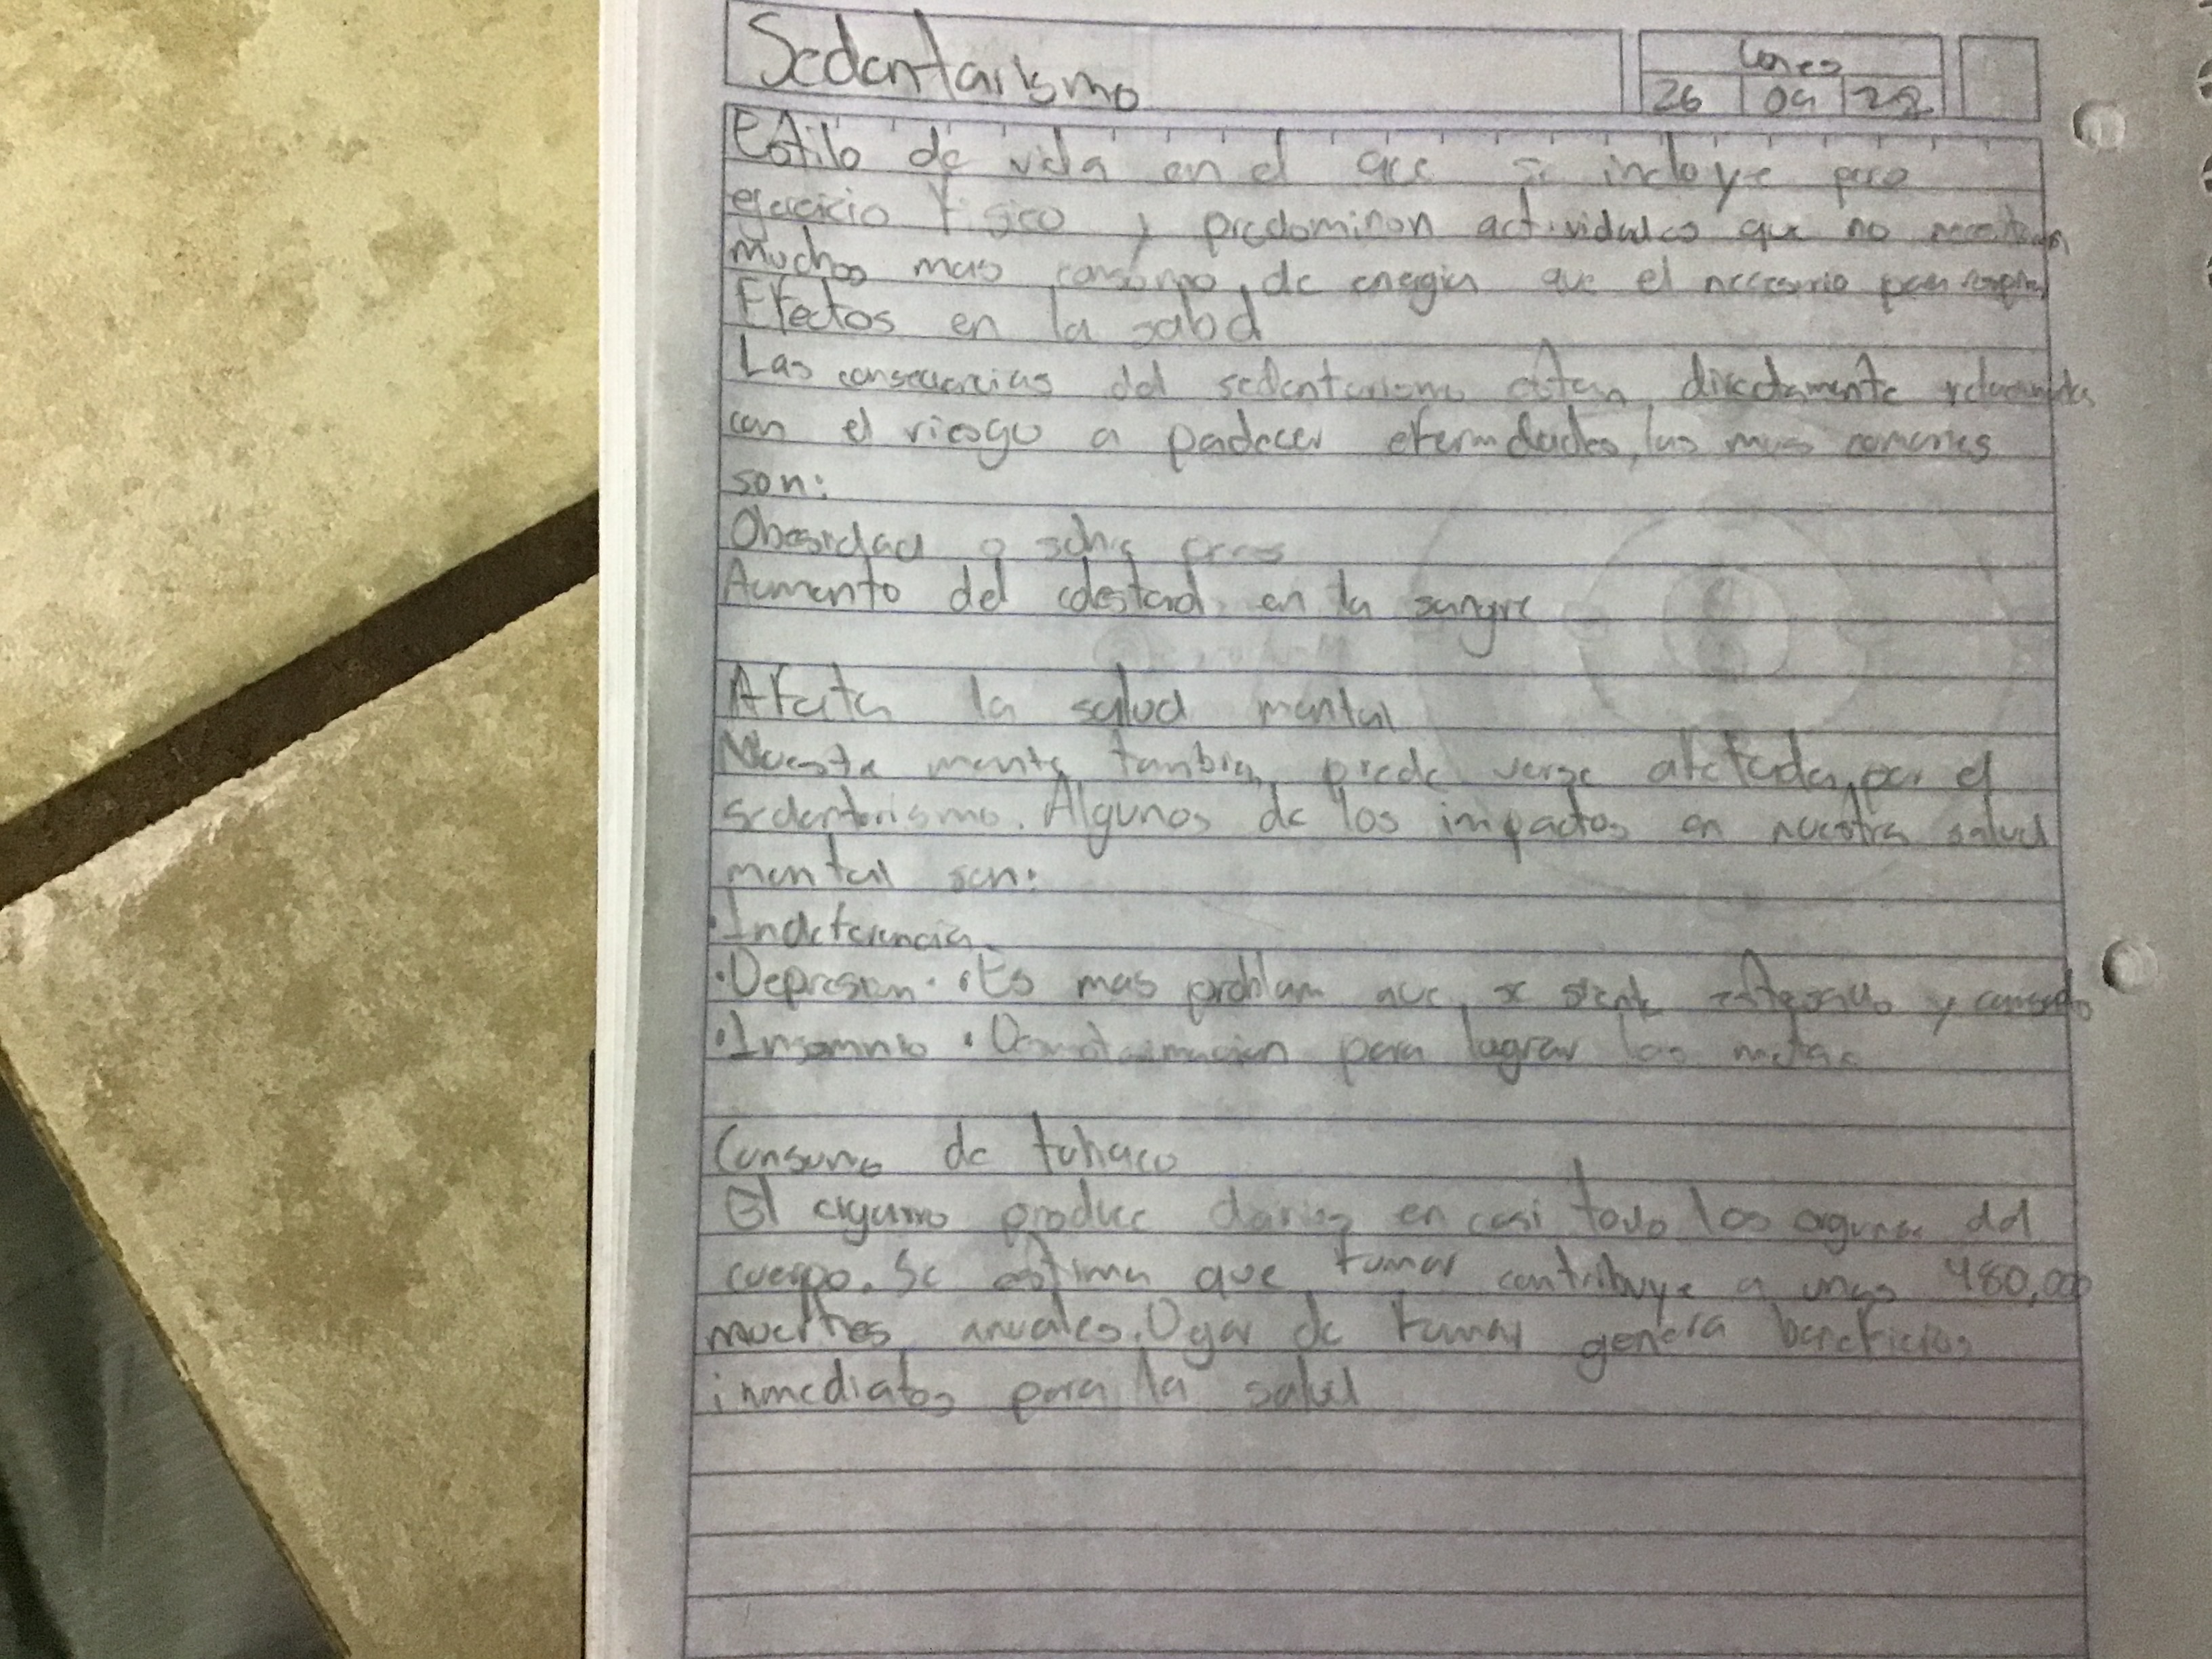 Sedentarismo
Lunes
26 09 22
Estilo de vida en el que se incluye poco
ejercicio fisico y predominan actividades que no necesitan
muchos mas consumo de energia que el necesario para
Efectos en la salud
Las consecuencias del sedentarismo estan directamente relacionadas
con el riesgo a padecer efermdades, las mas comunes
son:
Obesidad o
Aumento del colesterol en la sangre
Afecta la salud mental
Nuestra mente tambien puede verse afectada por el
sedentarismo. Algunos de los impactos en nuestra salud
mental son:
·Indeferencia
·Depresion ·Es mas problam que se siente y cansado
·Insomnio · para lograr las metas
Consumo de tabaco
El cigarro produce daños en casi todo los organos del
cuerpo. Se estima que fumar contribuye a unas 480,000
muertes anuales. de fumar genera beneficios
inmediatos para la salud